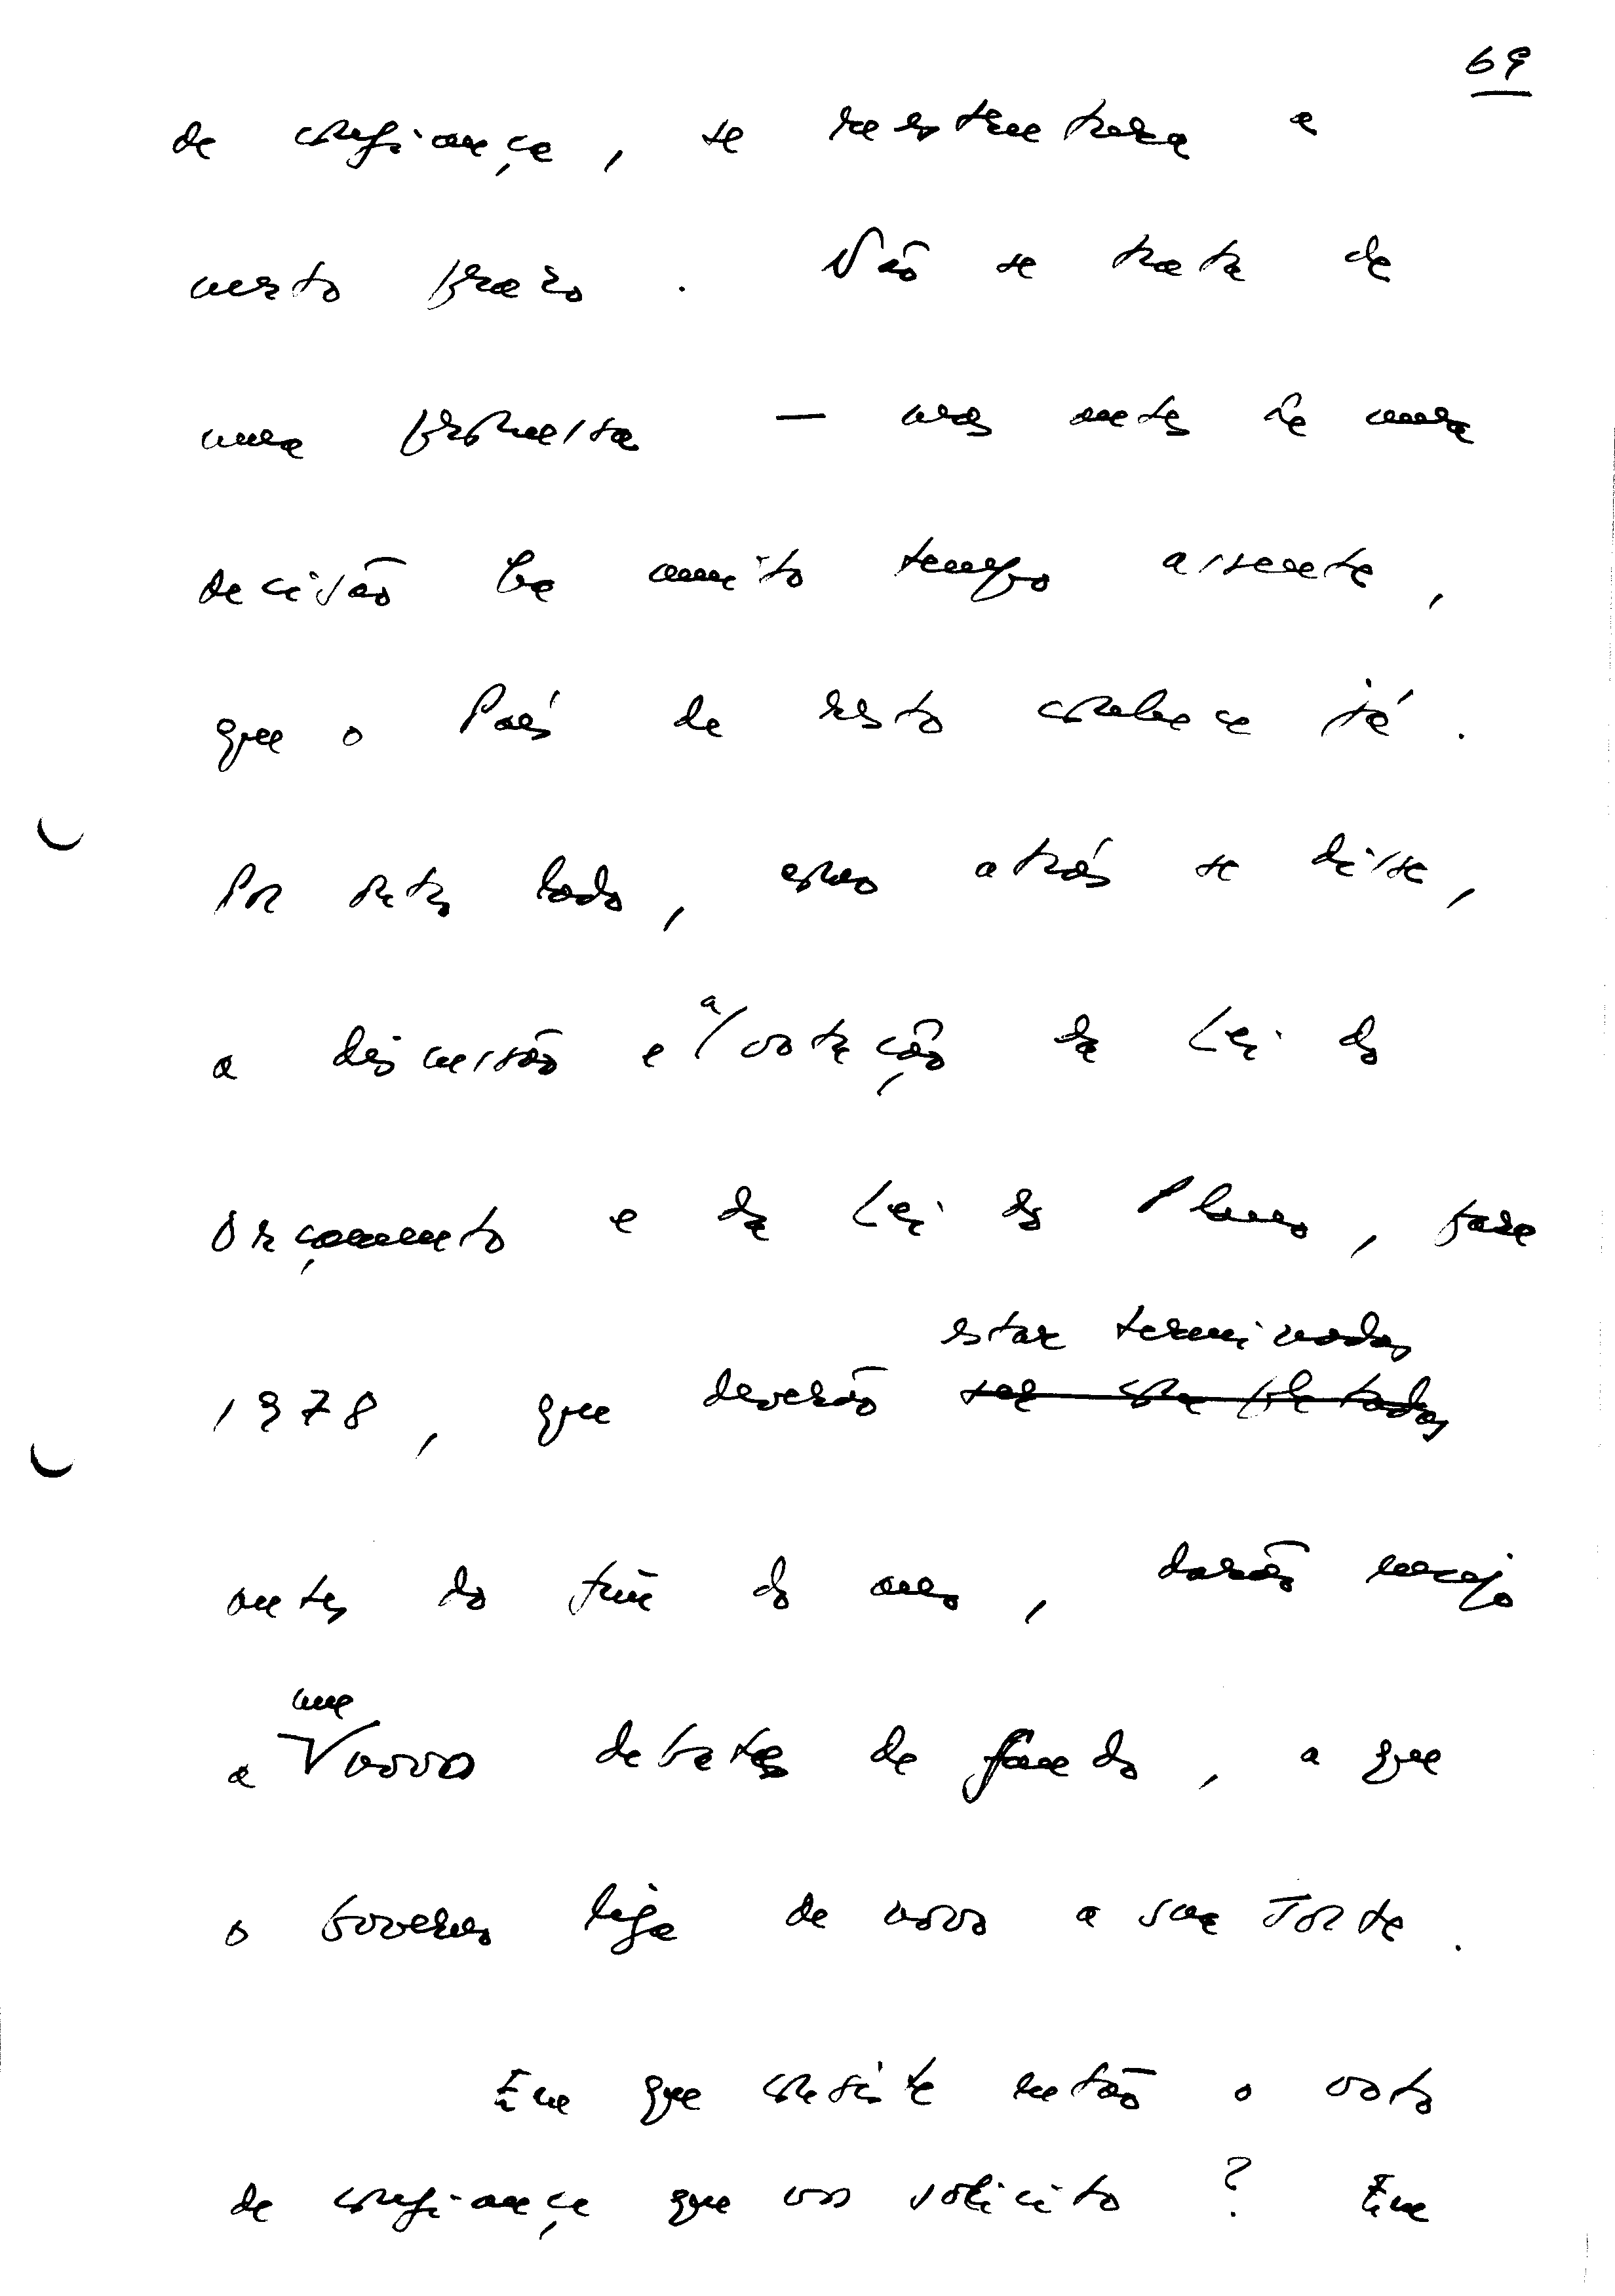 69
de confiança, se reestruturará a
curto prazo. Não se trata de
uma promessa — mas antes de uma
decisão há muito tempo assente,
que o País de resto conhece já.
Por outro lado, como atrás se disse,
a discussão e a votação da Lei do
Orçamento e da Lei do Plano, para
estar terminadas
1978, que deverão ser completadas
antes do fim do ano, darão ensejo
um
a novo debate de fundo, a que
o Governo liga de novo a sua sorte.
Em que consiste então o voto
de confiança que vos solicito? Em